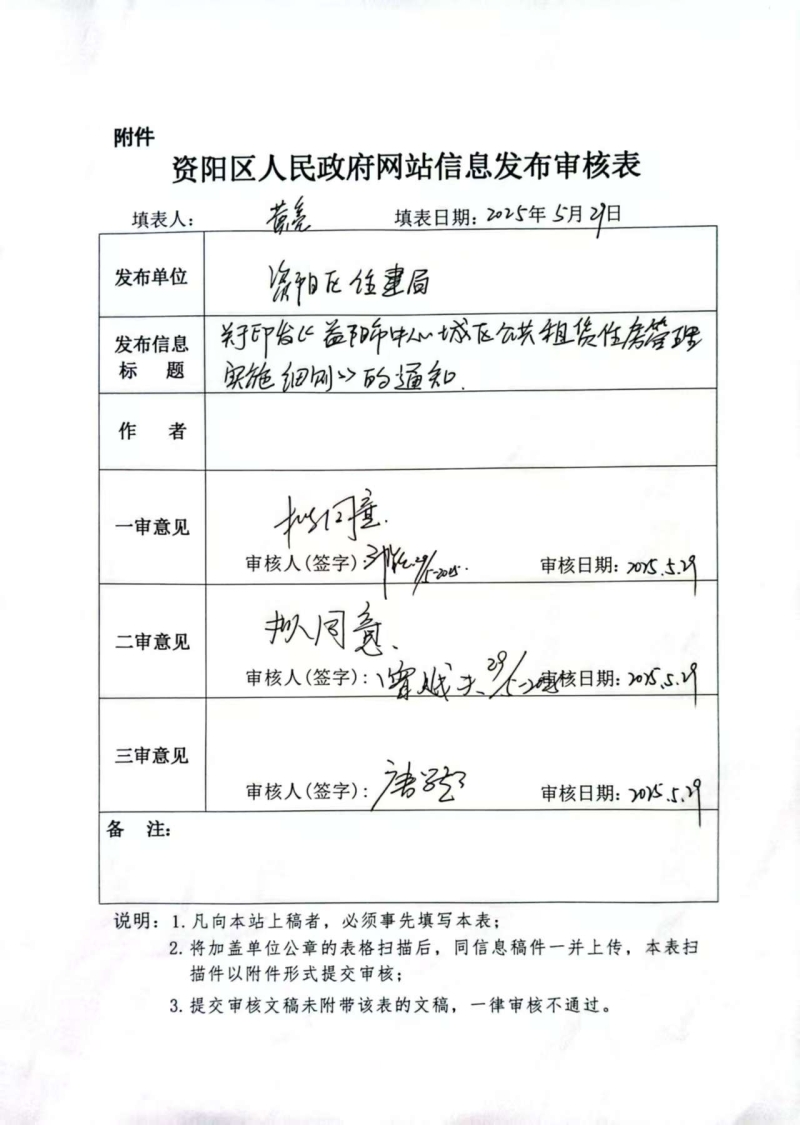 附件
资阳区人民政府网站信息发布审核表
填表人： 黄亮 填表日期：2025年5月29日
发布单位 资阳区住建局
发布信息标 题 关于印发《益阳市中心城区公共租赁住房管理
实施细则》的通知.
作 者
一审意见 拟同意.
审核人(签字): 29/5-2025. 审核日期: 2025.5.29
二审意见 拟同意.
审核人(签字): 29/5-2025 审核日期: 2025.5.29
三审意见
审核人(签字): 唐 审核日期: 2025.5.29
备 注:
说明：1.凡向本站上稿者，必须事先填写本表；
2.将加盖单位公章的表格扫描后，同信息稿件一并上传，本表扫
描件以附件形式提交审核；
3.提交审核文稿未附带该表的文稿，一律审核不通过。